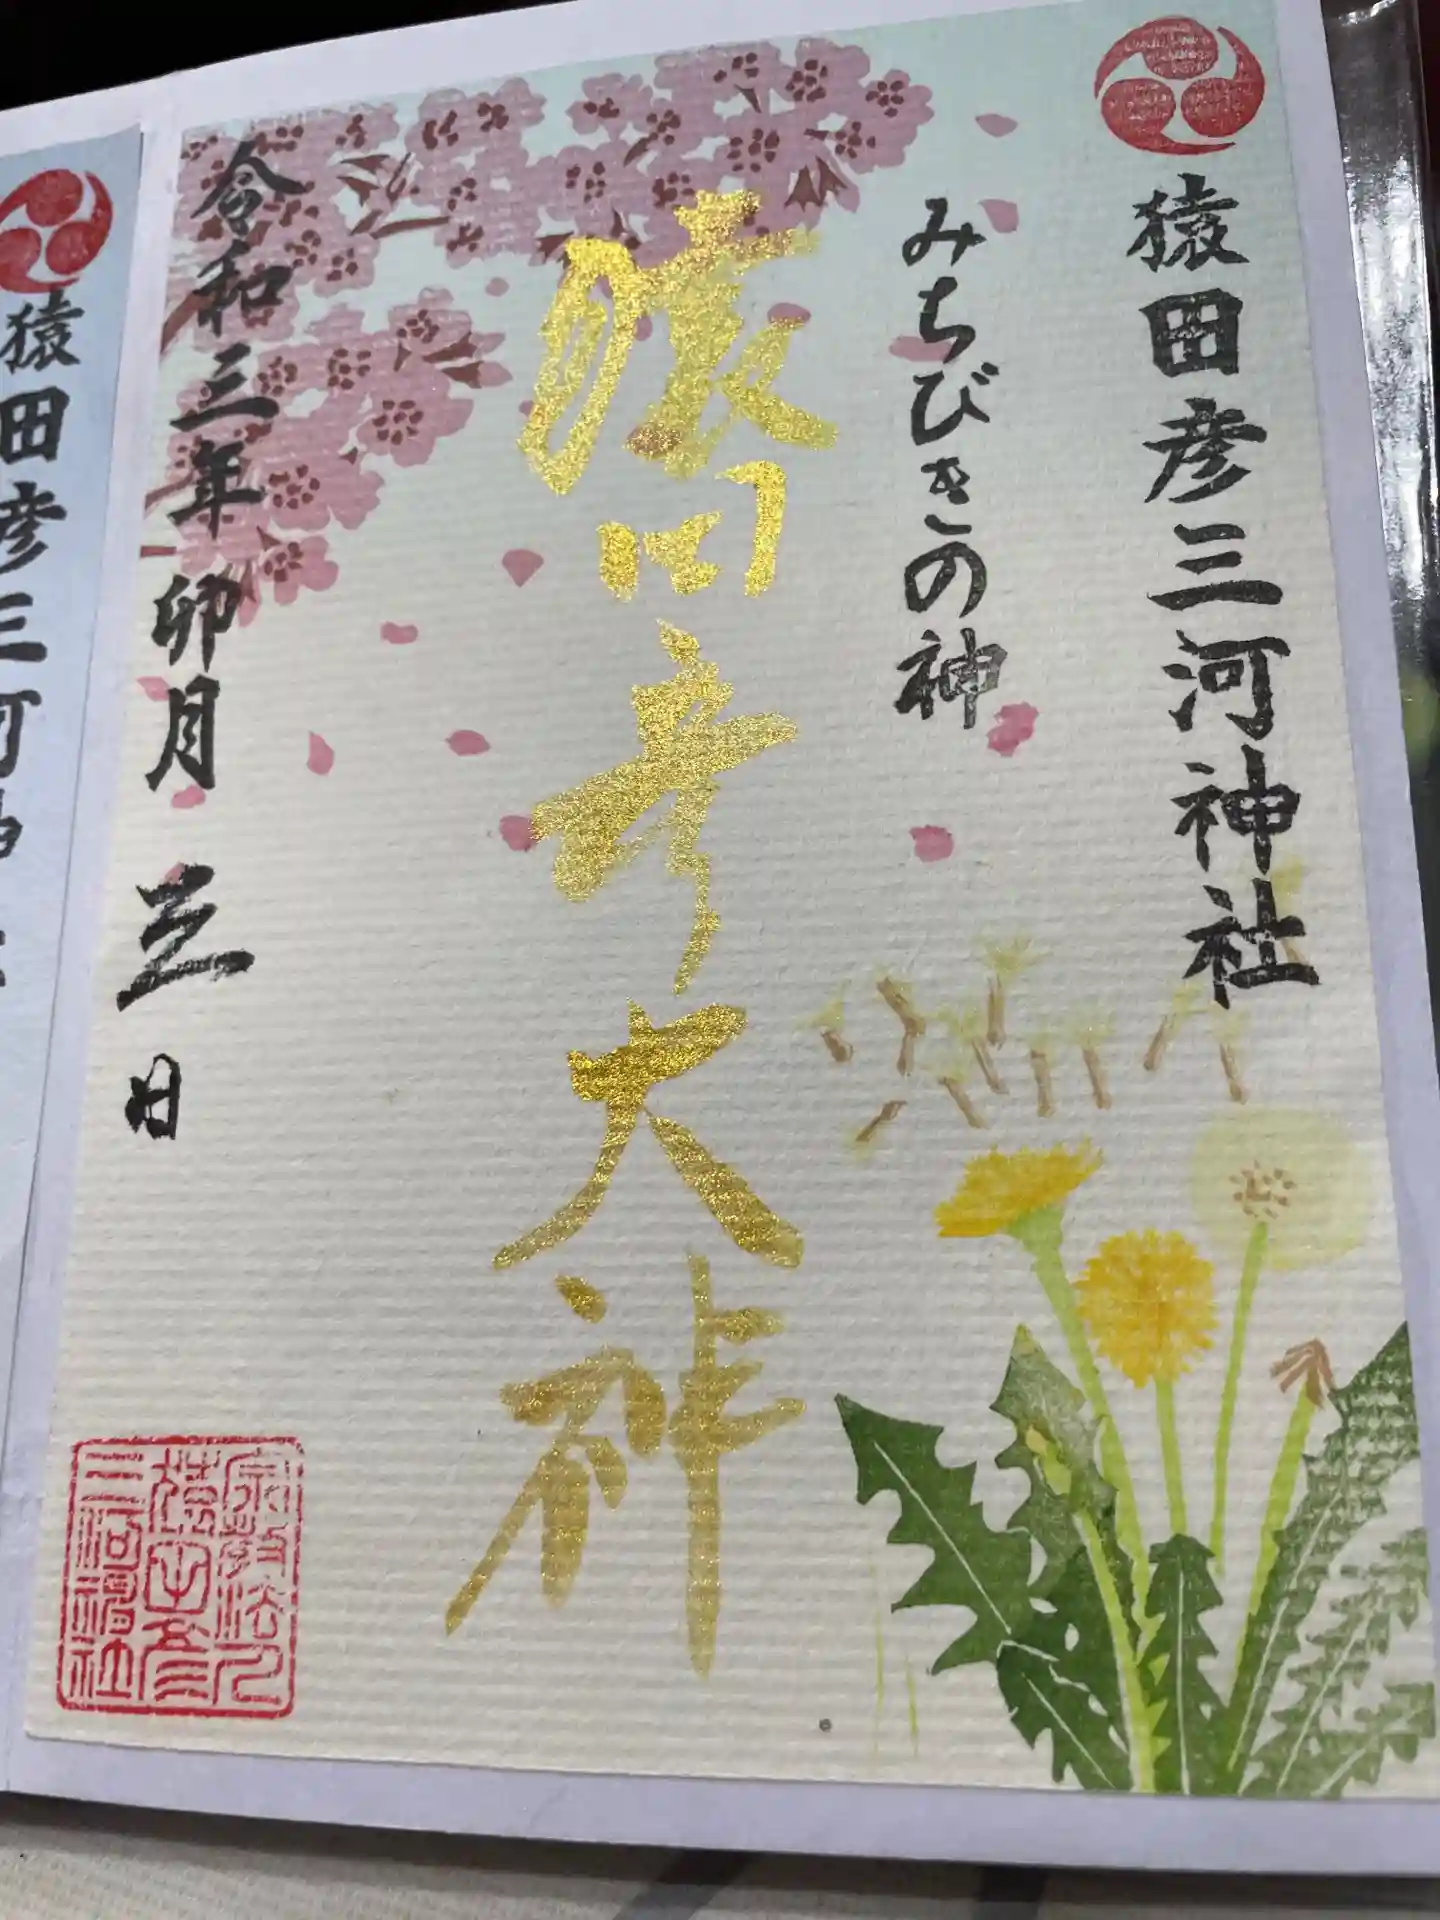 猿田彦三河神社
みちびきの神
猿田彦大神
令和三年卯月
日
宗教法人
猿田彦
三河神社
猿田彦三河